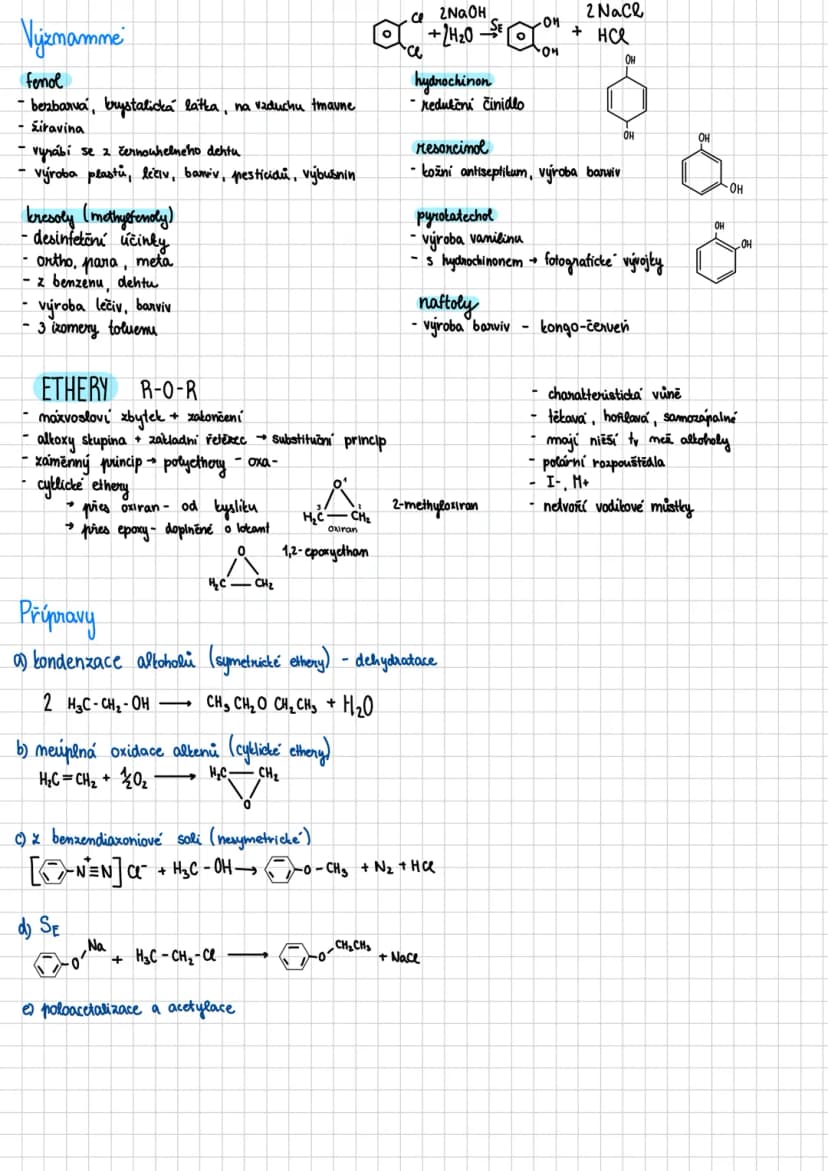 Významné
Cl 2NaOH OH 2NaCl
+2H₂O SE → + HCl
Cl OH
fenol
- bezbarvá, krystalická látka, na vzduchu tmavne
- žíravina
- vyrábí se z černouhelného dehtu
- výroba plastů, léčiv, barviv, pesticidů, výbušnin
kresoly (methylfenoly)
- desinfekční účinky
- ortho, para, meta
- z benzenu, dehtu
- výroba léčiv, barviv
- 3 izomery toluenu
hydrochinon
- redukční činidlo
OH
OH
resorcinol
- kožní antiseptikum, výroba barviv
OH
OH
pyrokatechol
- výroba vanilinu
- s hydrochinonem → fotografické vývojky
OH
OH
naftoly
- výroba barviv - kongo-červeň
ETHERY R-O-R
- názvosloví zbytek + zakončení
- alkoxy skupina + základní řetězec → substituční princip
- záměnný princip → polyethery - oxa-
- cyklické ethery
→ přes oxiran- od kyslíku
→ přes epoxy- doplněné o lokant
O¹
³H₂C — CH₂²
oxiran
2-methyloxiran
1,2-epoxyethan
O
H₂C — CH₂
- charakteristická vůně
- těkavá, hořlavá, samozápalné
- mají nižší tv než alkoholy
- polární rozpouštědla
- I-, M+
- netvoří vodíkové můstky
Přípravy
a) kondenzace alkoholů (symetrické ethery) - dehydratace
2 H₃C-CH₂-OH ⟶ CH₃CH₂OCH₂CH₃ + H₂O
b) neúplná oxidace alkenů (cyklické ethery)
H₂C=CH₂ + ½O₂ ⟶ H₂C — CH₂
O
c) z benzendiazoniové soli (nesymetrické)
[ -N⁺≡N] Cl⁻ + H₃C-OH ⟶ -O-CH₃ + N₂ + HCl
d) SE
-O-Na + H₃C-CH₂-Cl ⟶ -O-CH₂CH₃ + NaCl
e) poloacetalizace a acetylace